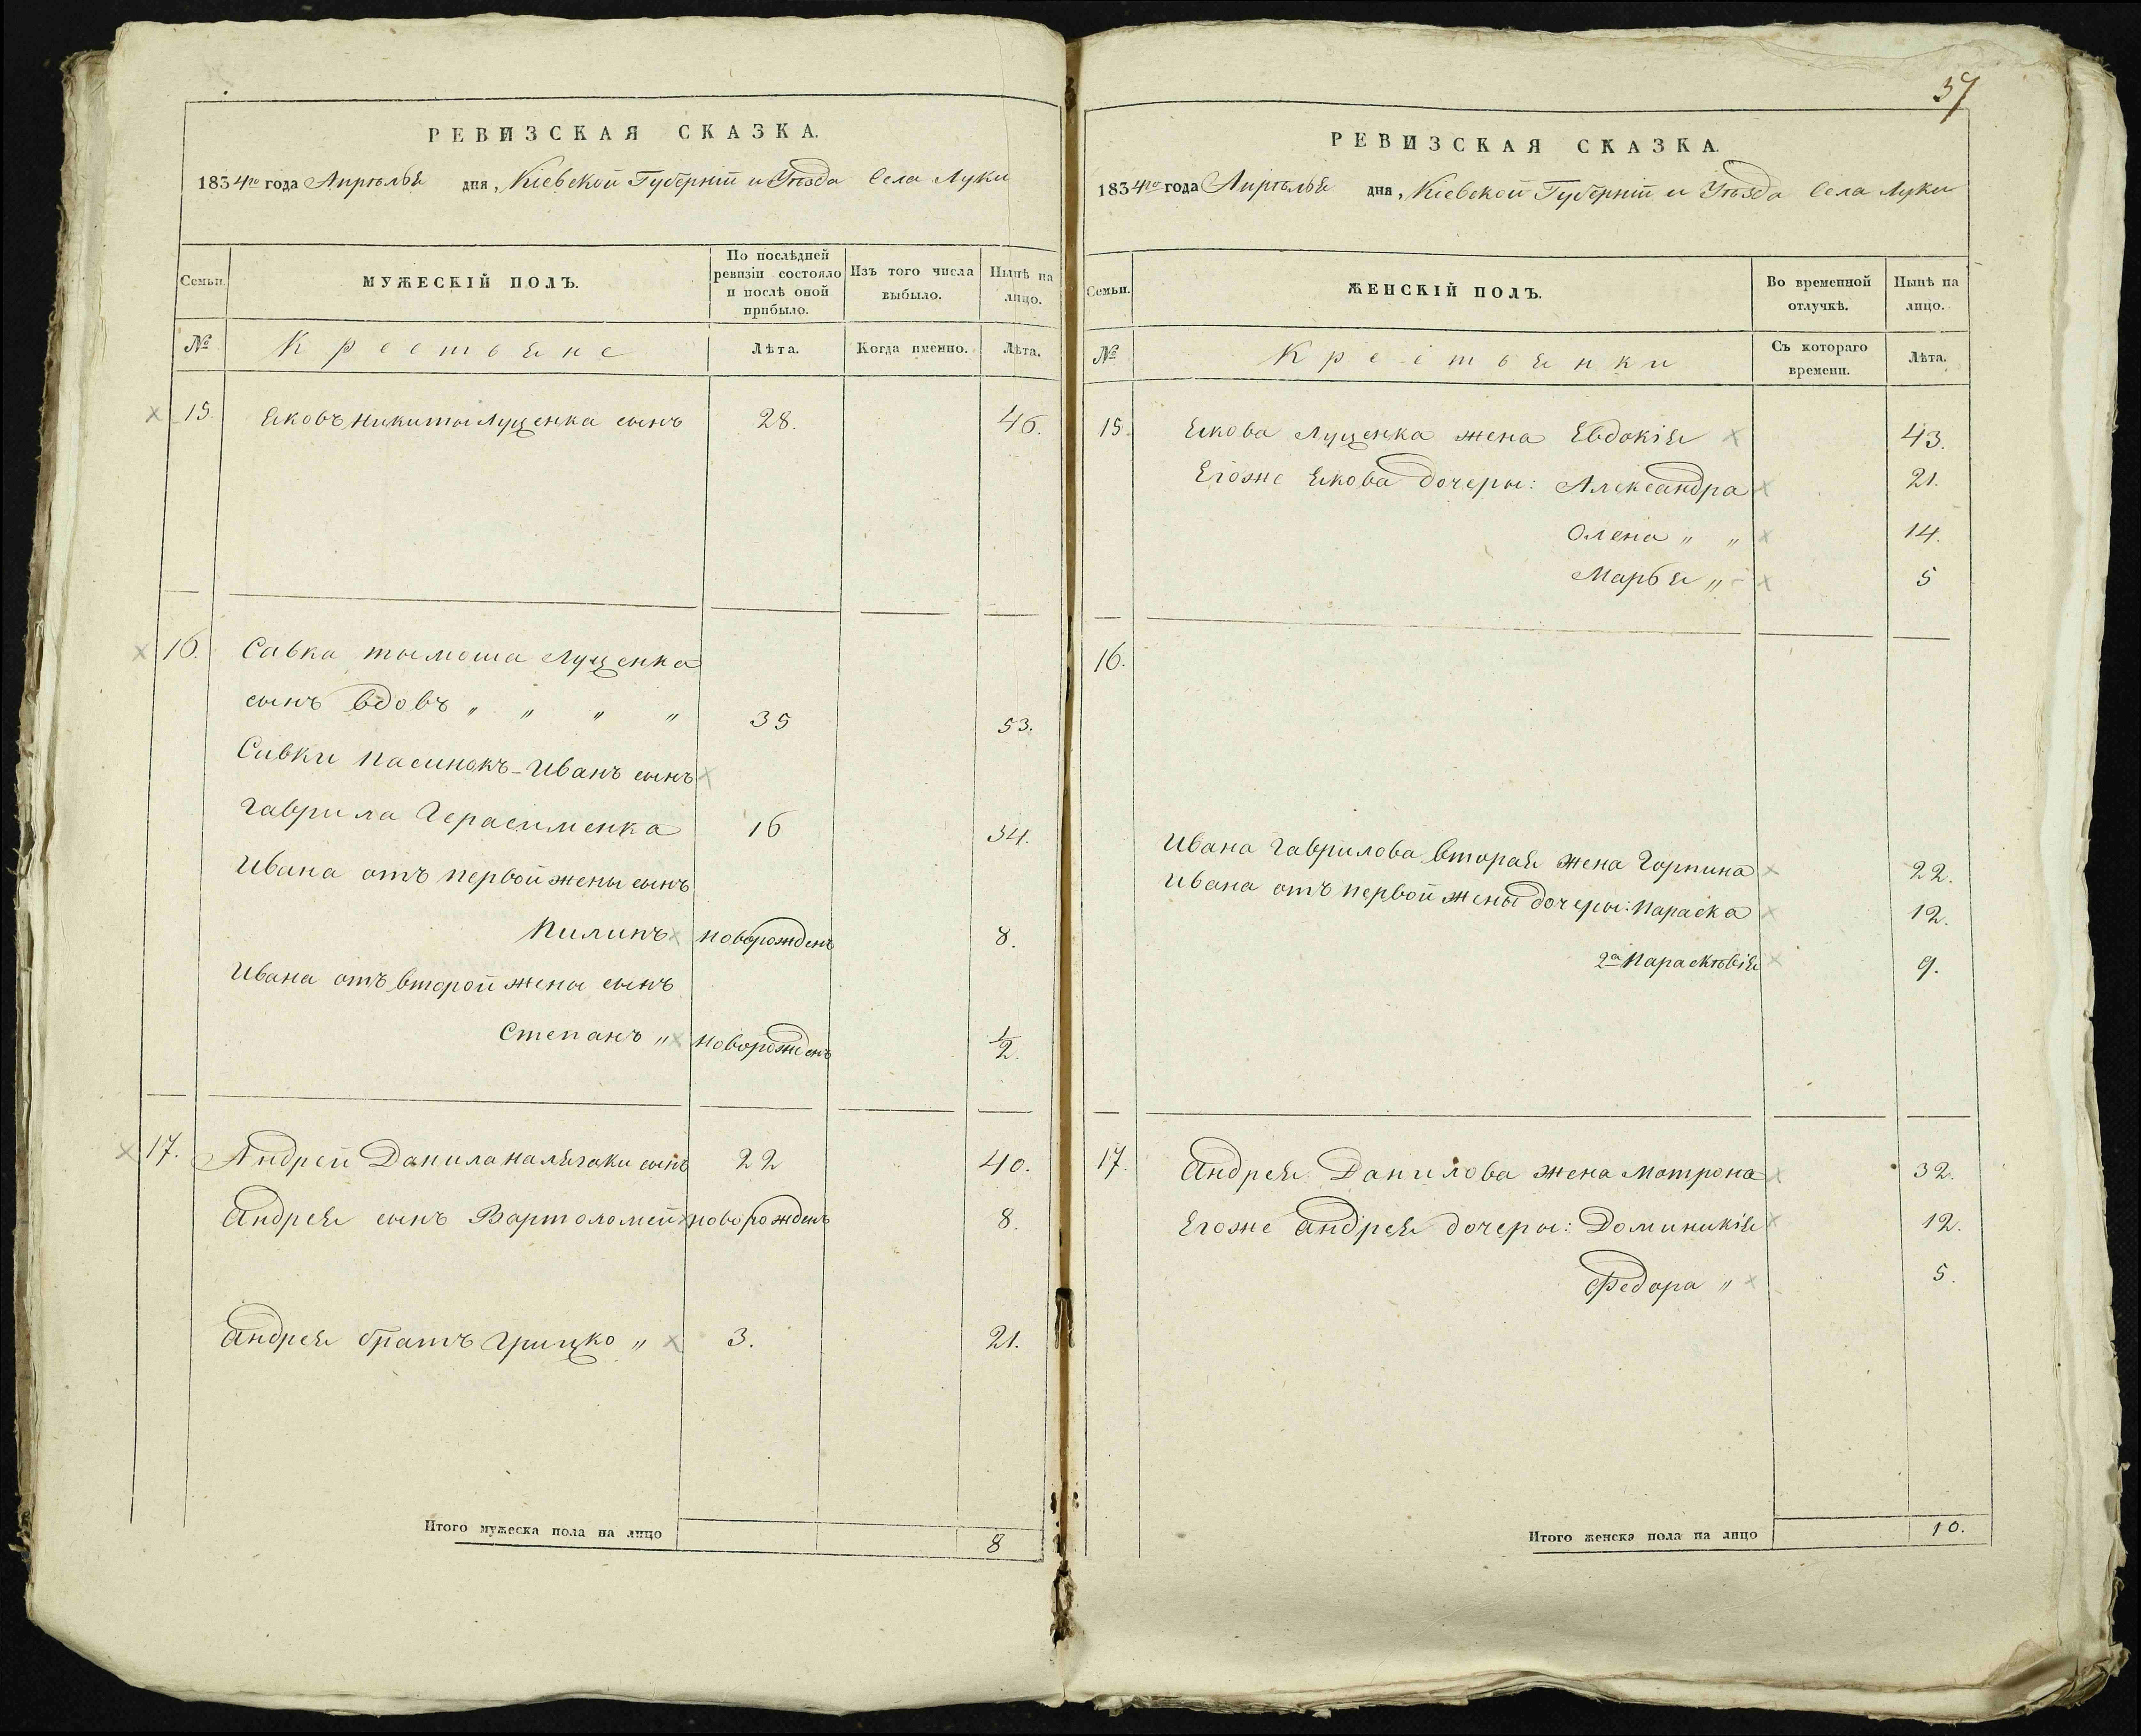 РЕВИЗСКАЯ СКАЗКА.
1834го года Апрѣля дня, Кіевской Губерніи и Уѣзда Села Луки
Семьи. МУЖЕСКІЙ ПОЛЪ. По послѣдней ревизіи состояло и послѣ оной прибыло. Изъ того числа выбыло. Нынѣ на лицо.
№ Крестьяне Лѣта. Когда именно. Лѣта.
15. Яковъ Никиты Луценка сынъ 28. 46.
16. Савка тымоша Луценка
сынъ вдовъ „ „ „ „ 35 53.
Савки пасинокъ-Иванъ сынъ
Гаврила Герасименка 16 34.
Ивана отъ первой жены сынъ
Пилипъ новорожденъ 8.
Ивана отъ второй жены сынъ
Степанъ „ новорожденъ 1/2.
17. Андрей Данила сынъ 22 40.
Андрея сынъ Вартоломей новорожденъ 8.
Андрея братъ Грицко „ 3. 21.
Итого мужеска пола на лицо 8
37
РЕВИЗСКАЯ СКАЗКА.
1834го года Апрѣля дня, Кіевской Губерніи и Уѣзда Села Луки
Семьи. ЖЕНСКІЙ ПОЛЪ. Во временной отлучкѣ. Нынѣ на лицо.
№ Крестьянки Съ котораго времени. Лѣта.
15. Якова Луценка жена Евдокія 43.
Егоже Якова дочеры: Александра 21.
Олена „ „ 14.
Марья „ 5
16.
Ивана Гаврилова вторая жена Горпина 22.
Ивана отъ первой жены дочеры: Параска 12.
2а Параскѣвія 9.
17. Андрея Данилова жена Мотрона 32.
Егоже Андрея дочеры: Доминикія 12.
Федора „ 5.
Итого женска пола на лицо 10.